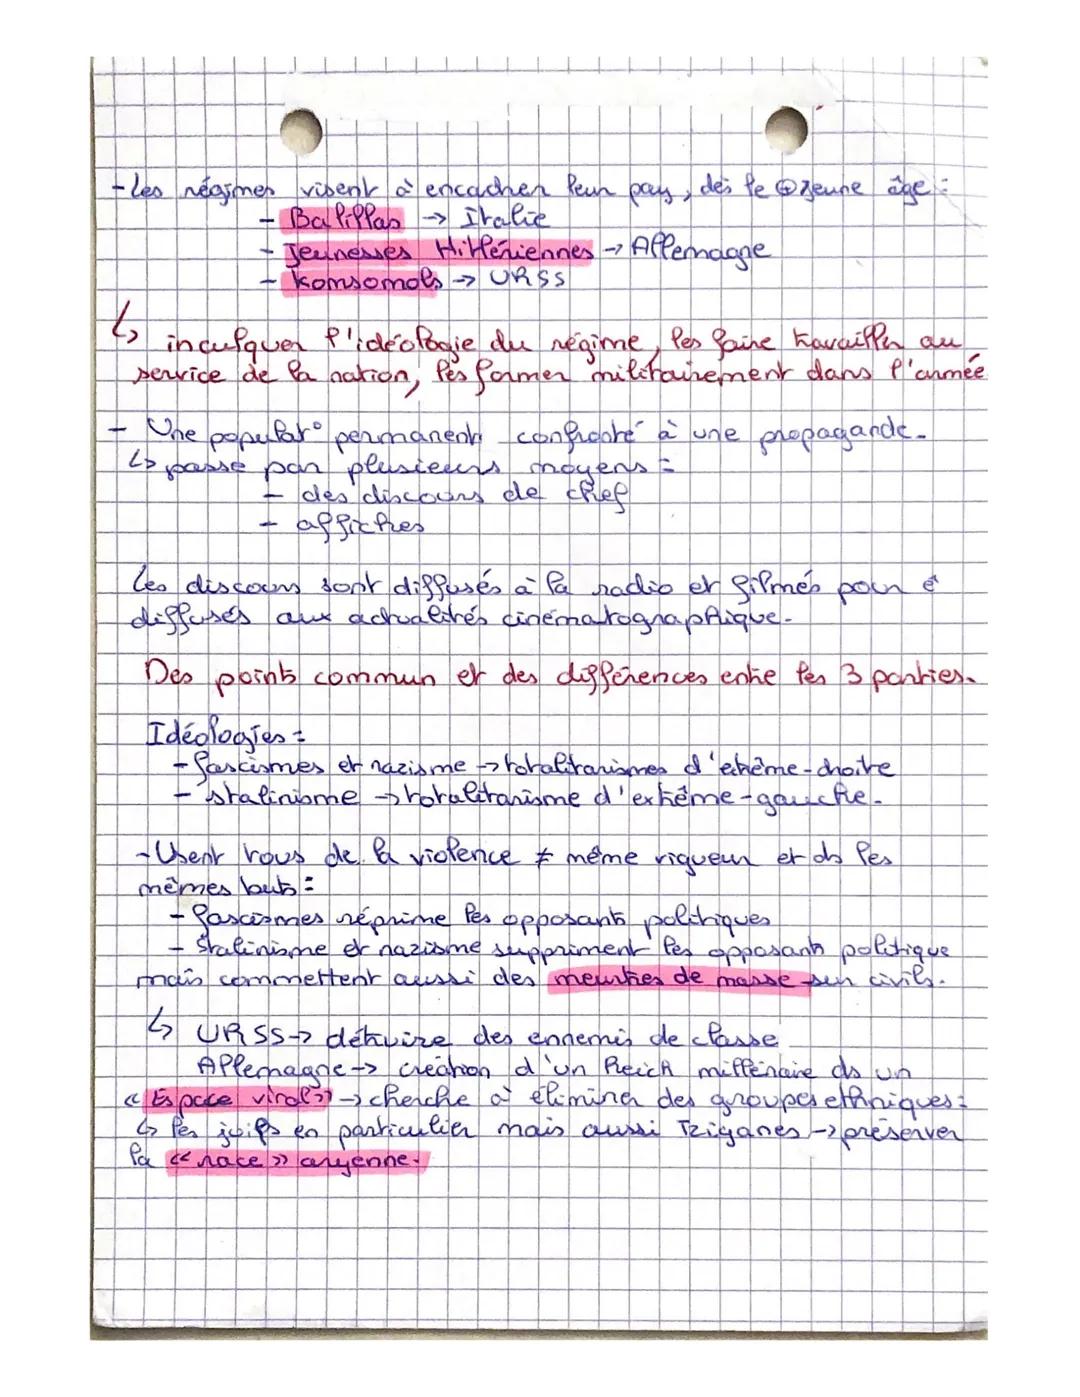 - Les régimes visent à encadrer leur pays, dès le ⊕ jeune âge :
- Balillas → Italie
- Jeunesses Hitlériennes → Allemagne
- Komsomols → URSS
↳ inculquer l'idéologie du régime, les faire travailler au
service de la nation, les former militairement dans l'armée
- Une populat° permanent confronté à une propagande.
↳ passe par plusieurs moyens :
- des discours de chef
- affiches
Les discours sont diffusés à la radio et filmés pour ê
diffusés aux actualités cinématographique.
Des points commun et des différences entre les 3 parties.
Idéologies :
- fascismes et nazisme → totalitarismes d'extrême-droite
- stalinisme → totalitarisme d'extrême-gauche.
- Usent tous de la violence ≠ même rigueur et ds les
mêmes buts :
- fascismes réprime les opposants politiques
- Stalinisme et nazisme suppriment les opposants politique
mais commettent aussi des meurtres de masse sur civils.
↳ URSS → détruire des ennemis de classe
Allemagne → création d'un Reich millénaire ds un
« Espace vital » → cherche à éliminer des groupes ethniques :
↳ les juifs en particulier mais aussi Tziganes → préserver
la « race » aryenne.